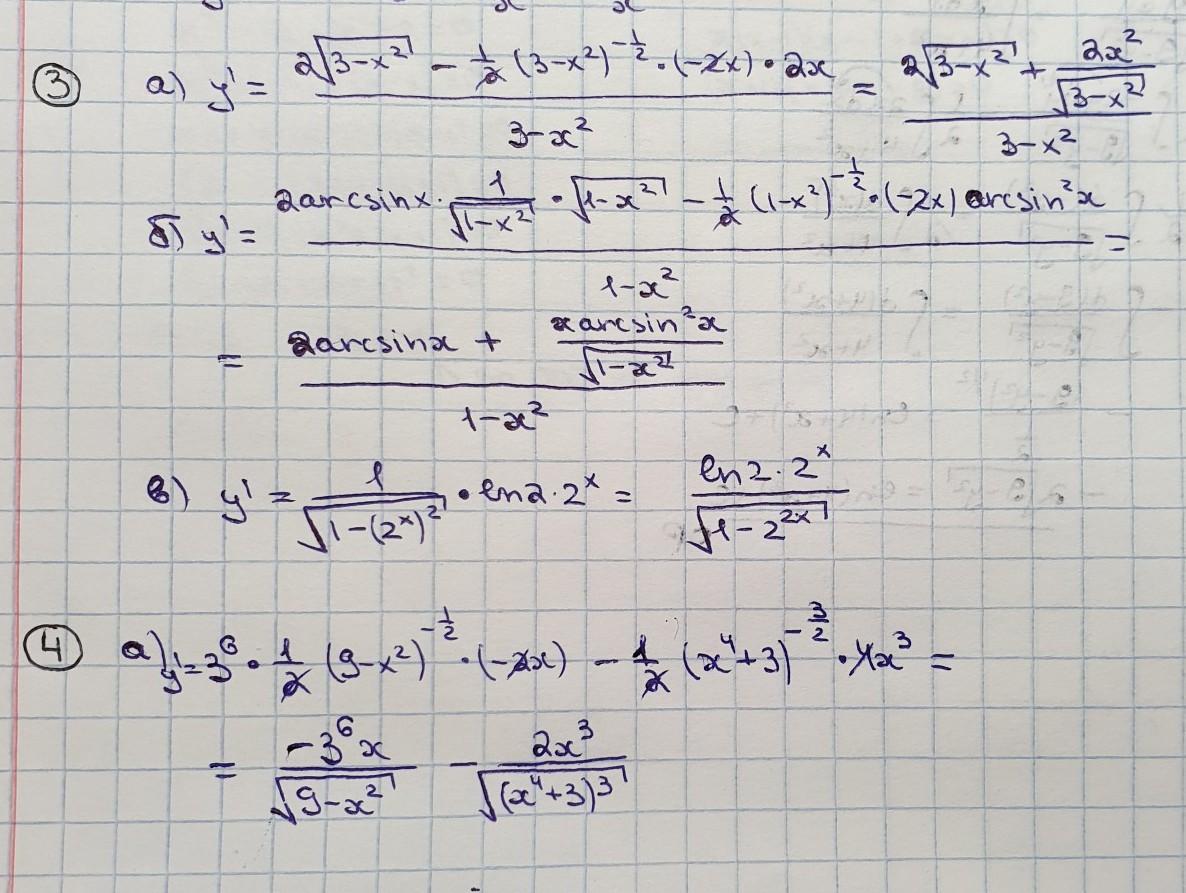 ③ а) y' = (2√(3-x²) - 1/2 (3-x²)^(-1/2) · (-2x) · 2x) / (3-x²) = (2√(3-x²) + 2x²/√(3-x²)) / (3-x²)
б) y' = (2arcsinx · 1/√(1-x²) · √(1-x²) - 1/2 (1-x²)^(-1/2) · (-2x) arcsin²x) / (1-x²) =
= (2arcsinx + xarcsin²x/√(1-x²)) / (1-x²)
в) y' = 1/√(1-(2ˣ)²) · ln2 · 2ˣ = ln2 · 2ˣ/√(1-2^(2x))
④ а) y' = 3⁶ · 1/2 (9-x²)^(-1/2) · (-2x) - 1/2 (x⁴+3)^(-3/2) · 4x³ =
= -3⁶x/√(9-x²) - 2x³/√((x⁴+3)³)